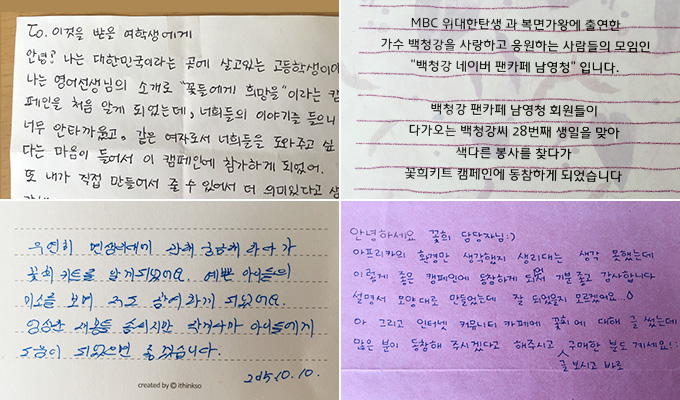 To. 이것을 받은 여학생에게
안녕? 나는 대한민국이라는 곳에 살고있는 고등학생이야
나는 영어선생님의 소개로 "꽃들에게 희망을"이라는 캠
페인을 처음 알게 되었는데, 너희들의 이야기를 들으니
너무 안타까웠고, 같은 여자로서 너희들을 도와주고 싶
다는 마음이 들어서 이 캠페인에 참가하게 되었어.
또 내가 직접 만들어서 줄 수 있어서 더 의미있다고 생
MBC 위대한탄생 과 복면가왕에 출연한
가수 백청강을 사랑하고 응원하는 사람들의 모임인
"백청강 네이버 팬카페 남영청" 입니다.
백청강 팬카페 남영청 회원들이
다가오는 백청강씨 28번째 생일을 맞아
색다른 봉사를 찾다가
꽃희키트 캠페인에 동참하게 되었습니다
우연히 면생리대에 관해 궁금해 하다가
꽃희 키트를 알게되었어요. 예쁜 아이들의
미소를 보며 저도 참여하게 되었어요.
엉성한 작게나마 아이들에게
도움이 되었으면 좋겠습니다.
created by © ithinkso
2015.10.10.
안녕하세요 꽃희 담당자님:)
아프리카의 환경만 생각했지 생리대는 생각 못했는데
이렇게 좋은 캠페인에 동참하게 되어 기분 좋고 감사합니다
설명서 모양대로 만들었는데 잘 되었을지 모르겠어요
아 그리고 인터넷 커뮤니티 카페에 꽃희에 대해 글 썼는데
많은 분이 동참해 주시겠다고 해주시고 글 보시고 바로 구매한 분도 계세요!: